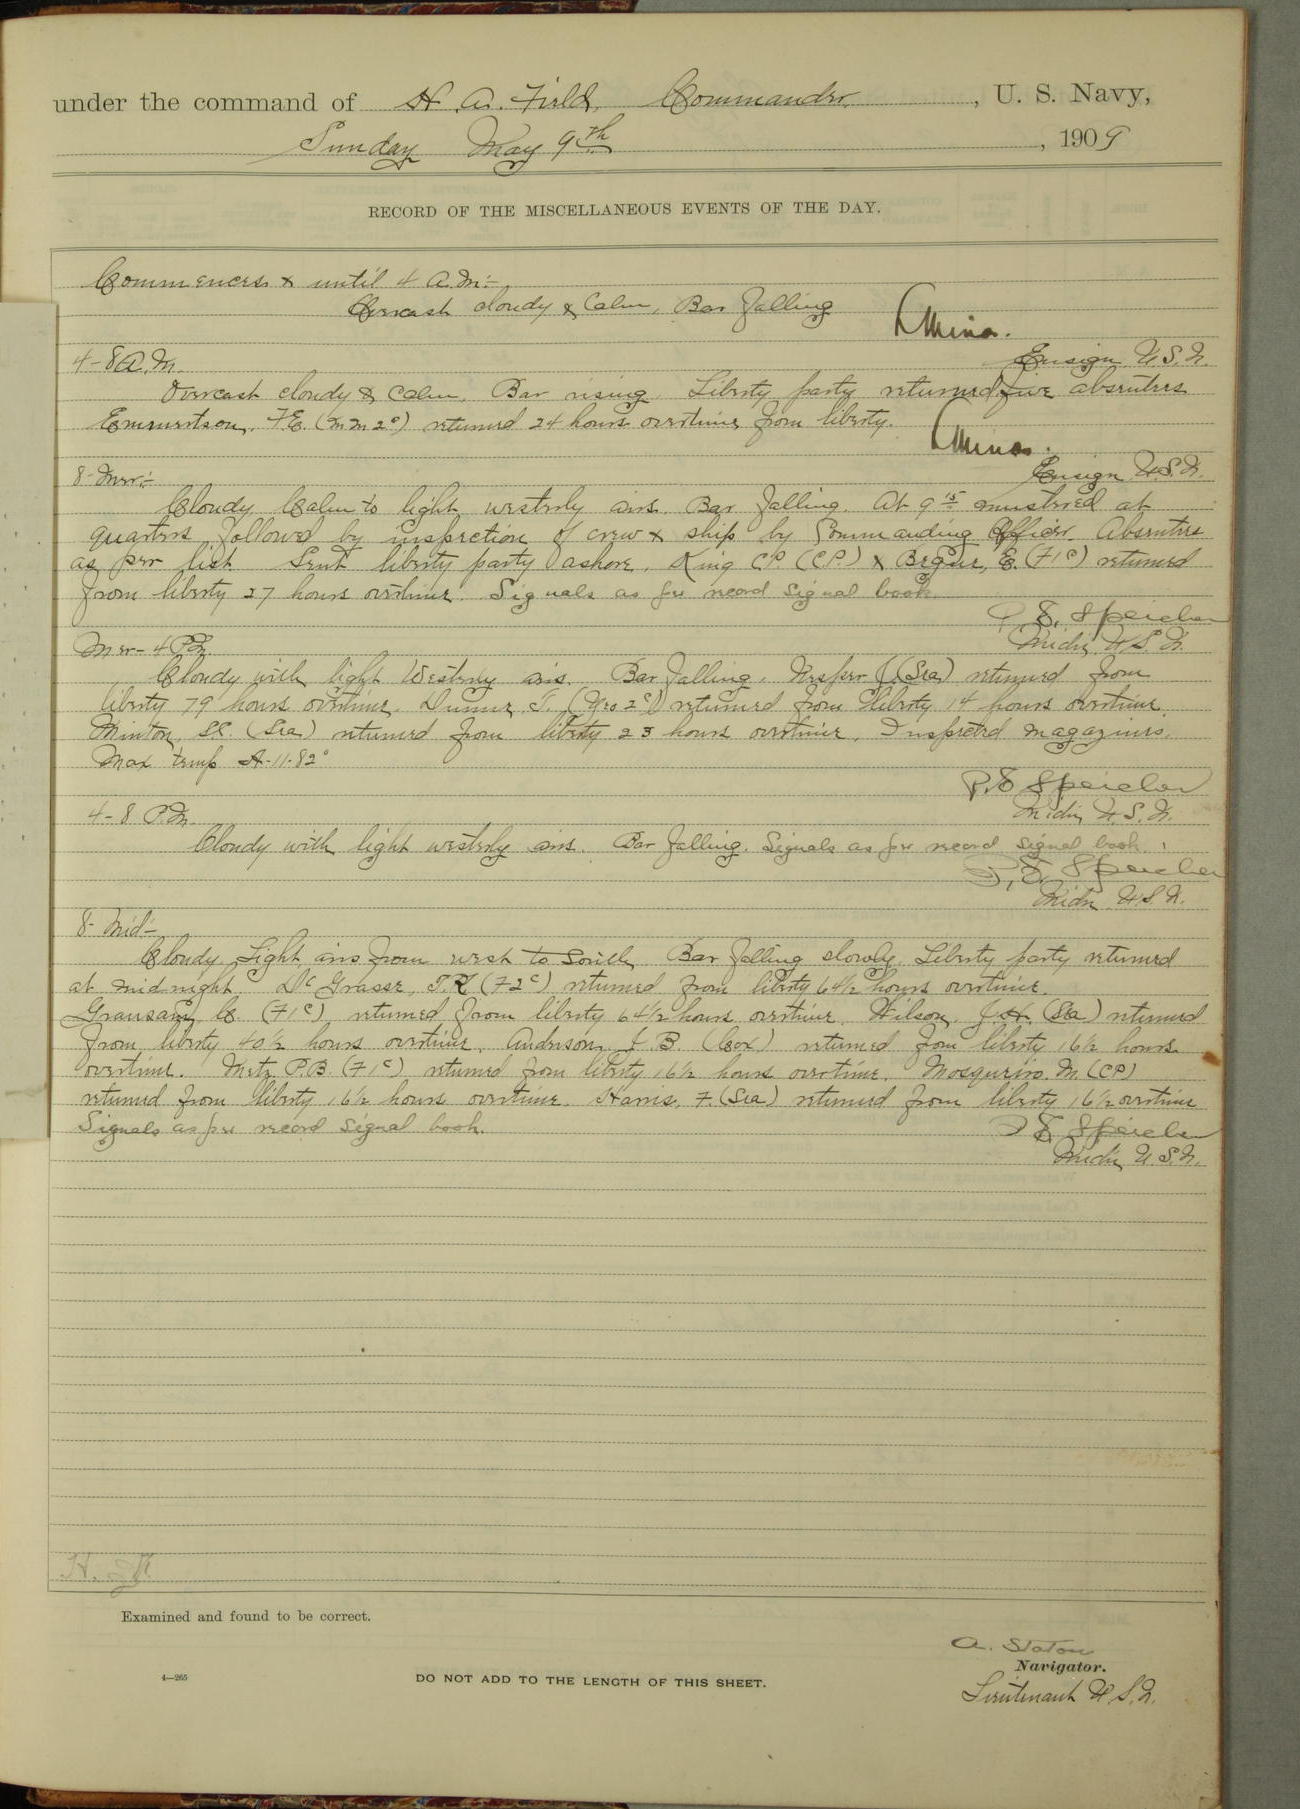 under the command of H. A. Field, Commander, U. S. Navy,
Sunday May 9th, 1909
RECORD OF THE MISCELLANEOUS EVENTS OF THE DAY.
Commences & until 4 A.M:-
Overcast cloudy & Calm, Bar falling
Ensign U.S.N.
4-8 A.M.
Overcast cloudy & Calm. Bar rising. Liberty party returned five absentees
Emmertson, F.E. (M M 2c) returned 24 hours overtime from liberty.
8-Mer:-
Ensign U.S.N.
Cloudy Calm to light westerly airs. Bar falling. At 9 15 mustered at
quarters followed by inspection of crew & ship by Commanding Officer. Absentees
as per list. Sent liberty party ashore. King C.P. (C.P.) & E. (F1c) returned
from liberty 27 hours overtime. Signals as per record signal book
P. E. Speicher
Midn U.S.N.
Mer-4 P.M.
Cloudy with light Westerly airs. Bar falling. (Sea) returned from
liberty 79 hours overtime. J. (Yeo 2c) returned from liberty 14 hours overtime.
Minton, (Sea) returned from liberty 23 hours overtime. Inspected magazines.
Max temp A-11-82°
P. E. Speicher
Midn U.S.N.
4-8 P.M.
Cloudy with light westerly airs. Bar falling. Signals as per record signal book.
P. E. Speicher
Midn U.S.N.
8-Mid-
Cloudy Light airs from west to South Bar falling slowly. Liberty party returned
at midnight. De Grasse, (F2c) returned from liberty 64½ hours overtime.
C. (F1c) returned from liberty 64½ hours overtime. Wilson, J.H. (Sea) returned
from liberty 40½ hours overtime. Anderson, J. B. (Cox) returned from liberty 16½ hours
overtime. Metz, P.B. (F1c) returned from liberty 16½ hours overtime. Mosqueiro, M. (CP)
returned from liberty 16½ hours overtime. Harris, F. (Sea) returned from liberty 16½ overtime
Signals as per record Signal book.
P. E. Speicher
Midn U.S.N.
Examined and found to be correct.
A. Staton
Navigator.
4—265
DO NOT ADD TO THE LENGTH OF THIS SHEET.
Lieutenant U.S.N.